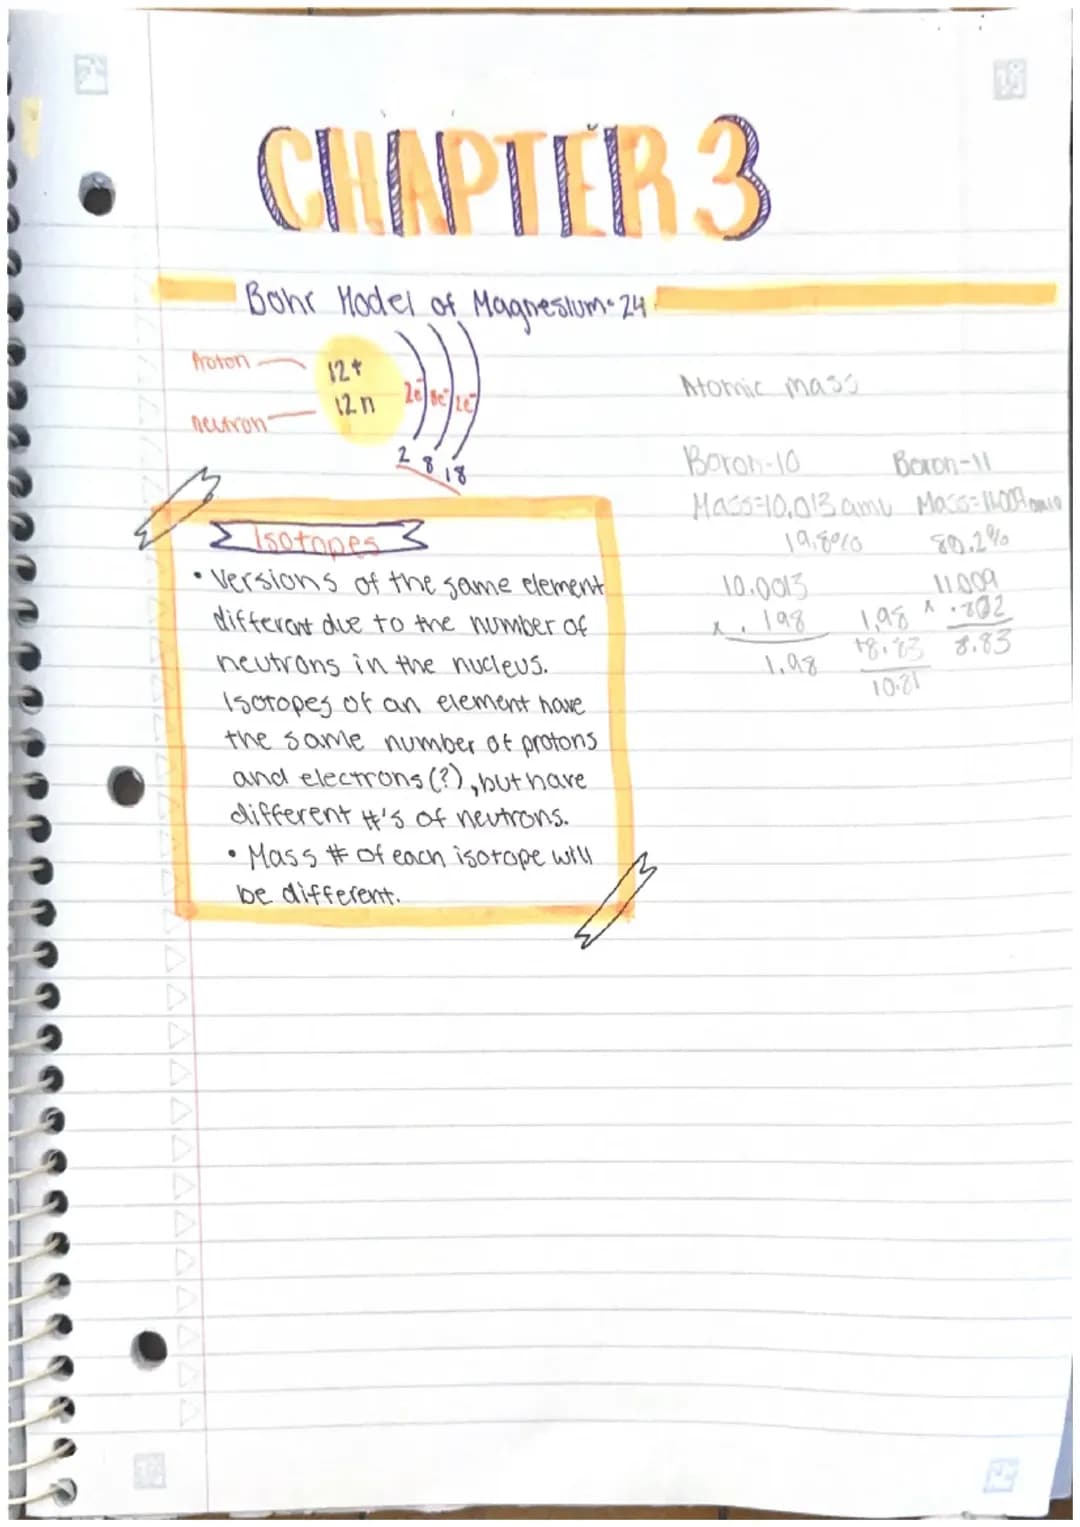 CHAPTER 3
Bohr Model of Magnesium-24
Proton
12+
neutron
12n
2e⁻ 8e⁻ 2e⁻
2 8 18
Isotopes
• Versions of the same element
different due to the number of
neutrons in the nucleus.
Isotopes of an element have
the same number of protons
and electrons(?), but have
different #'s of neutrons.
• Mass # of each isotope will
be different.
Atomic mass
Boron-10 Boron-11
Mass=10.013 amu Mass=11.009 amu
19.8% 80.2%
10.0013 11.009
x .198 1.98 x .802
1.98 +8.83 8.83
10.81